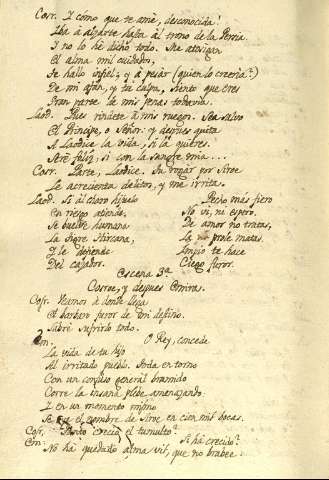 Cosr. Y cómo que te amé, desconocida!
Iba á alzarte hasta el trono de la Persia.
Y no lo hé dicho todo. Me atosigan
El alma mil cuidados,
Se hallo infiel; y á pesár (quien lo creería?)
De mi afán, y tu culpa, siento que eres
Gran parte de mis penas todavia.
Laod. Pues rindete á mis ruegos. Sea salvo
El Príncipe, o Señor: y despues quita
A Laodice la vida, si la quieres.
Seré felíz, si con la sangre mia....
Cosr. Parte, Laodice. Tu rogar por Siroe
Le acrecenta delitos, y me irrita.
Laod. Si al caro hijuelo
En riesgo atiende,
Se buelve humana
La tigre Hircana,
Y le defiende
Del cazador.
Pecho más fiero
No ví, ni espero.
De amor no tratas,
La prole matas.
Impío te hace
Ciego furor.
Escena 3ª
Cosroe, y despues Emira.
Cos. Veamos á donde llega
El barbaro furor de mi destino.
Sabré sufrirlo todo.
Em. O Rey, concede
La vida de tu hijo
Al irritado pueblo. Toda en torno
Con un confuso general bramido
Corre la insana plebe amenazando.
Y en un momento mismo
el nombre de Siroe en cien mil bocas.
Cos. Tanto creció el tumulto?
Em. Si há crecido?
No há quedado alma vil, que no